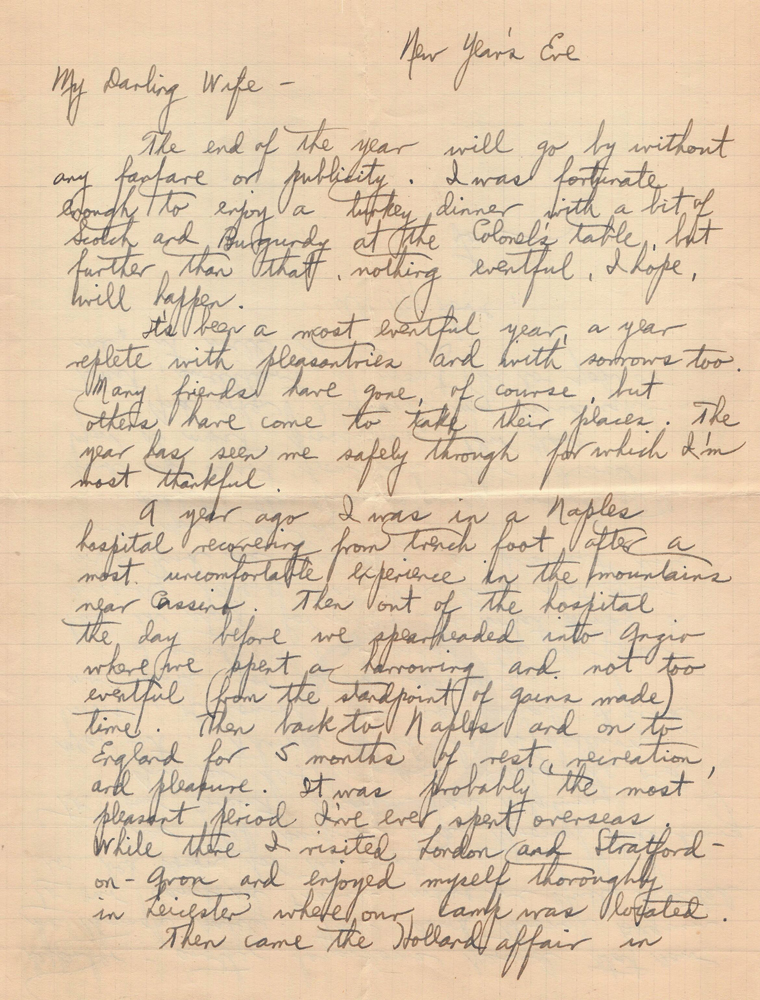 New Year's Eve
My Darling Wife -
The end of the year will go by without
any fanfare or publicity. I was fortunate
enough to enjoy a turkey dinner with a bit of
Scotch and Burgundy at the Colonel's table, but
further than that, nothing eventful, I hope,
will happen.
It's been a most eventful year, a year
replete with pleasantries and with sorrows too.
Many friends have gone, of course, but
others have come to take their places. The
year has seen me safely through for which I'm
most thankful.
A year ago I was in a Naples
hospital recovering from trench foot after a
most uncomfortable experience in the mountains
near Cassino. Then out of the hospital
the day before we spearheaded into Anzio
where we spent a harrowing and not too
eventful (from the standpoint of gains made)
time. Then back to Naples and on to
England for 5 months of rest, recreation,
and pleasure. It was probably the most
pleasant period I've ever spent overseas.
While there I visited London and Stratford-
on-Avon and enjoyed myself thoroughly
in Leicester where our camp was located.
Then came the Holland affair in